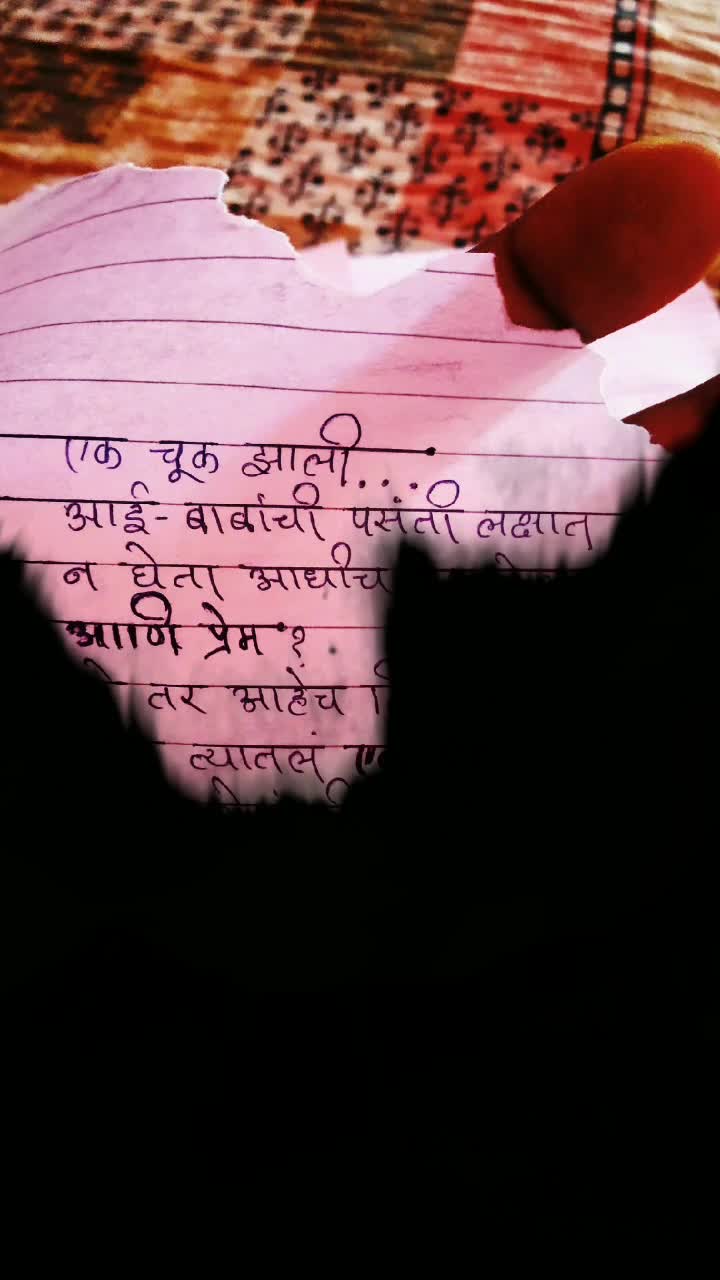 एक चूक झाली....
आई-बाबांची पसंती लक्षात
न घेता आधीच
आणि प्रेम ?
तर आहेच
त्यातलं